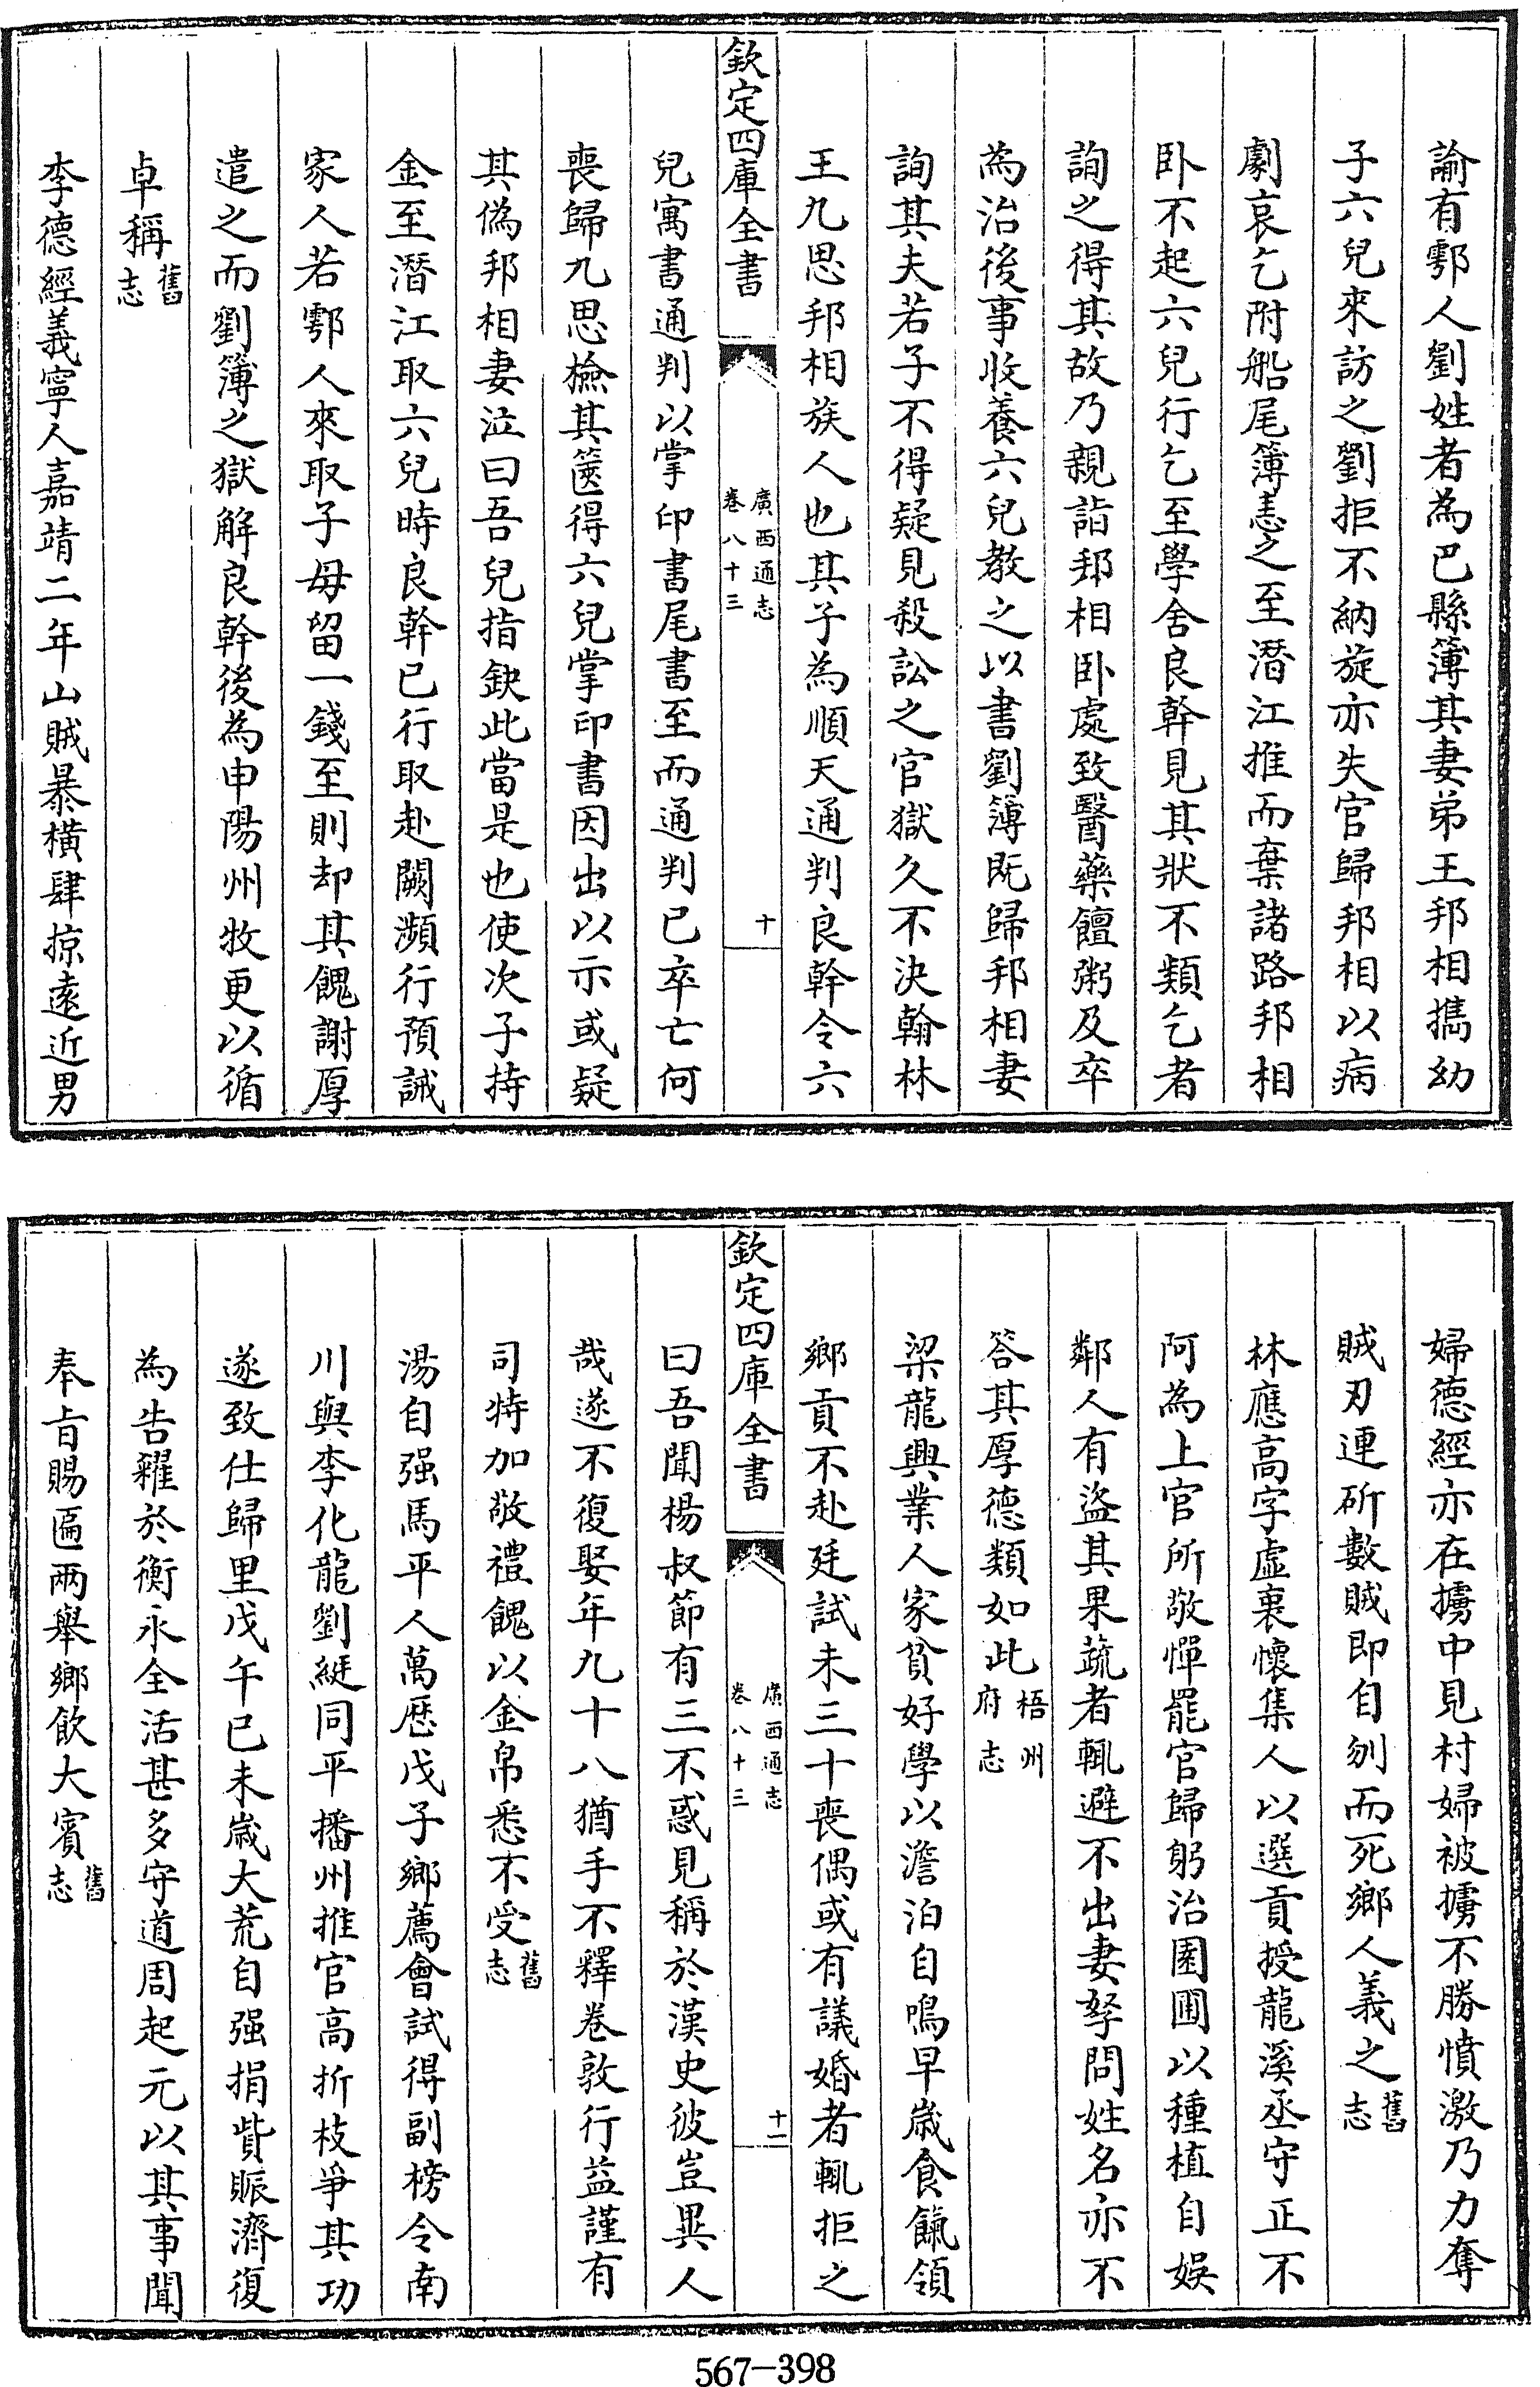 諭有鄠人劉姓者為巴縣簿其妻弟王邦相攜幼
子六兒來訪之劉拒不納旋亦失官歸邦相以病
劇哀乞附船尾簿恚之至潛江推而棄諸路邦相
卧不起六兒行乞至學舍良幹見其狀不類乞者
詢之得其故乃親詣邦相卧處致醫藥饘粥及卒
為治後事收養六兒教之以書劉簿旣歸邦相妻
詢其夫若子不得疑見殺訟之官獄久不決翰林
王九思邦相族人也其子為順天通判良幹令六
欽定四庫全書
廣西通志
卷八十三
十
兒寓書通判以掌印書尾書至而通判已卒亡何
喪歸九思檢其篋得六兒掌印書因出以示或疑
其偽邦相妻泣曰吾兒指鈌此當是也使次子持
金至潛江取六兒時良幹已行取赴闕瀕行預誡
家人若鄠人來取子毋留一錢至則却其餽謝厚
遣之而劉簿之獄解良幹後為申陽州牧更以循
卓稱舊志
李德經義寧人嘉靖二年山賊暴橫肆掠遠近男
婦德經亦在擄中見村婦被擄不勝憤激乃力奪
賊刃連斫數賊即自刎而死鄉人義之舊志
林應高字虛裏懷集人以選貢授龍溪丞守正不
阿為上官所敬憚罷官歸躬治園圃以種植自娛
鄰人有盜其果蔬者輒避不出妻孥問姓名亦不
答其厚德類如此梧州府志
梁龍興業人家貧好學以澹泊自鳴早嵗食餼領
鄉貢不赴廷試未三十喪偶或有議婚者輒拒之
欽定四庫全書
廣西通志
卷八十三
十一
曰吾聞楊叔節有三不惑見稱於漢史彼豈異人
哉遂不復娶年九十八猶手不釋卷敦行益謹有
司特加敬禮餽以金帛悉不受舊志
湯自强馬平人萬厯戊子鄉薦會試得副榜令南
川與李化龍劉綎同平播州推官高折枝爭其功
遂致仕歸里戊午己未嵗大荒自强捐貲賑濟復
為告糴於衡永全活甚多守道周起元以其事聞
奉㫖賜匾兩舉鄉飲大賓舊志
567-398